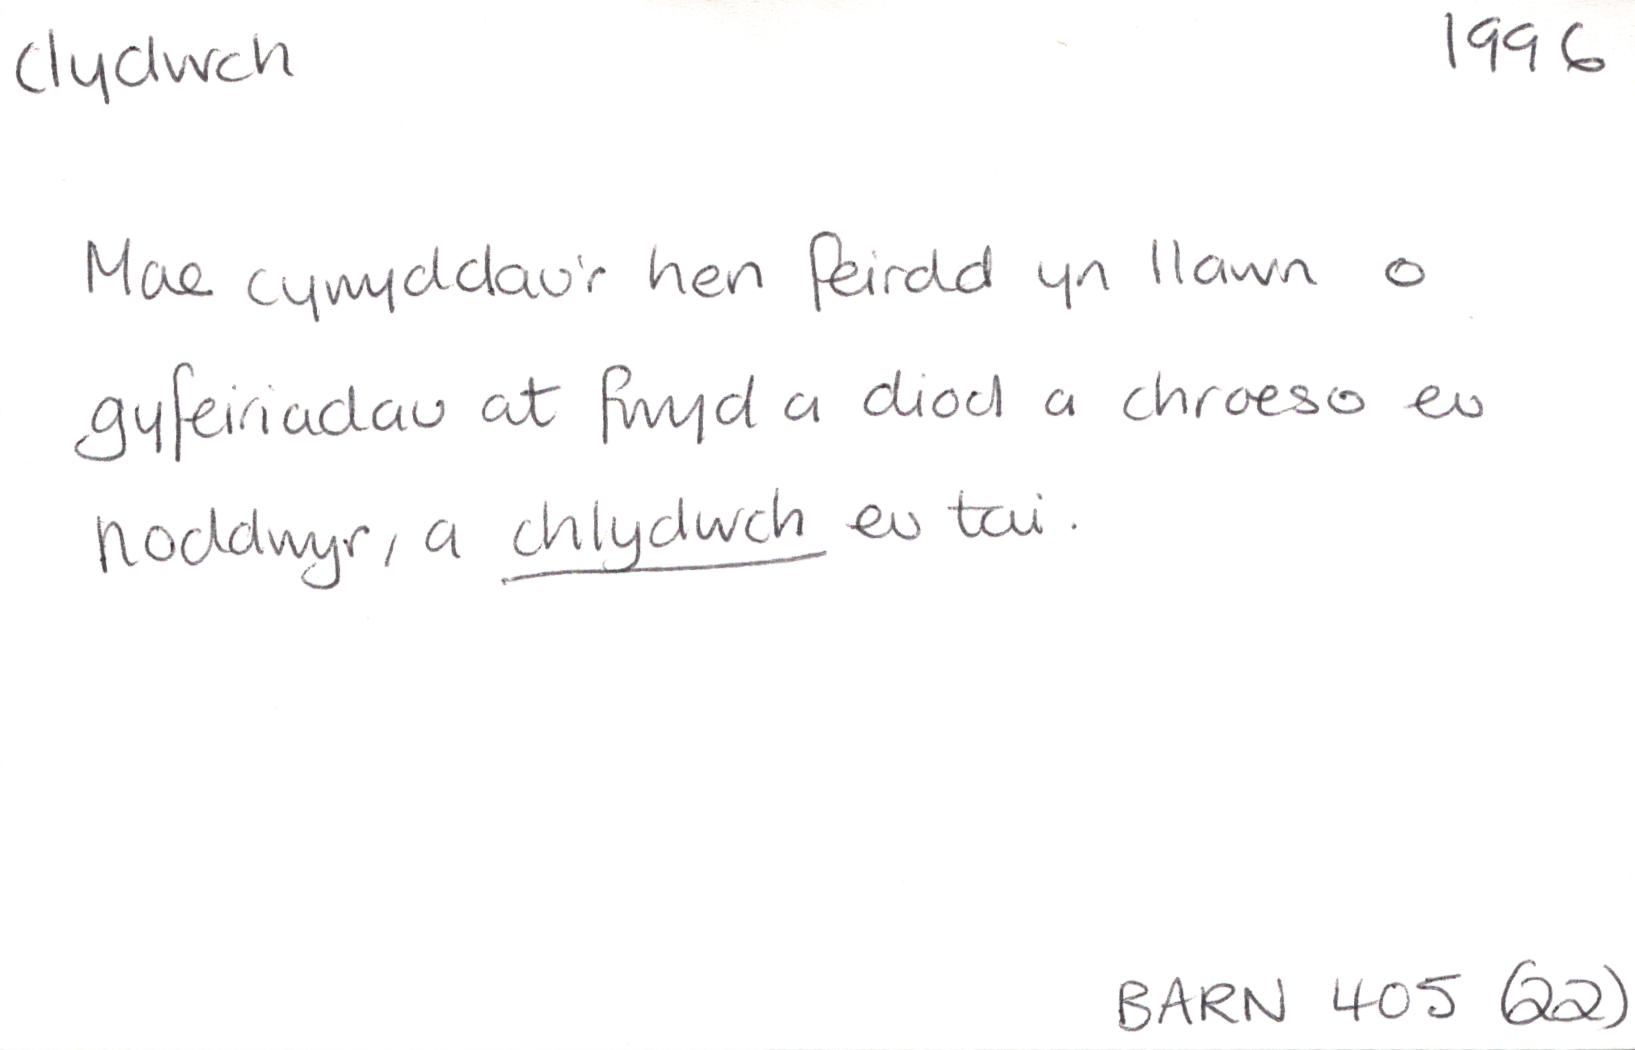 clydwch 1996
Mae cywyddau'r hen feirdd yn llawn o
gyfeiriadau at fwyd a diod a chroeso eu
noddwyr, a chlydwch eu tai.
BARN 405 (22)